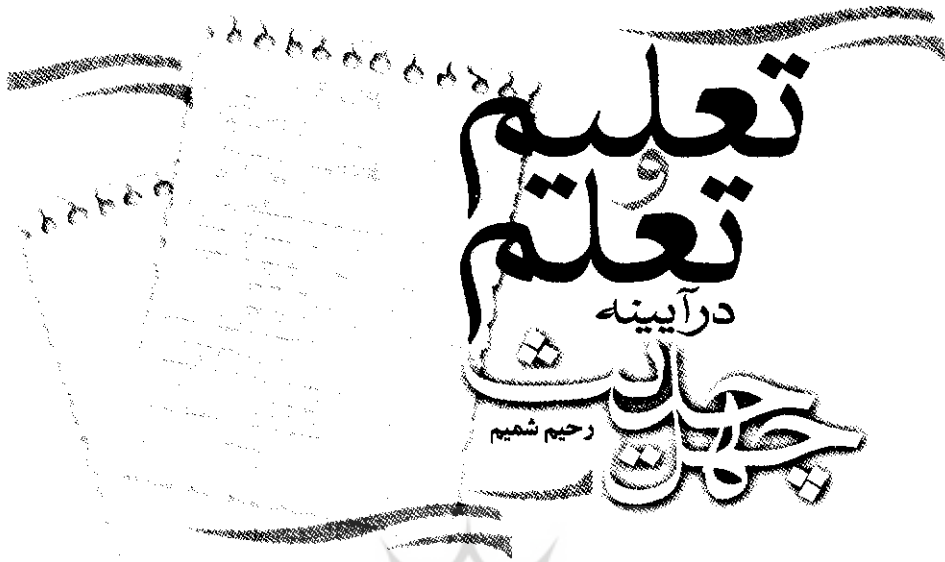 تعلیم
و
تعلم
در آیینه
چهل حدیث
رحیم شمیم